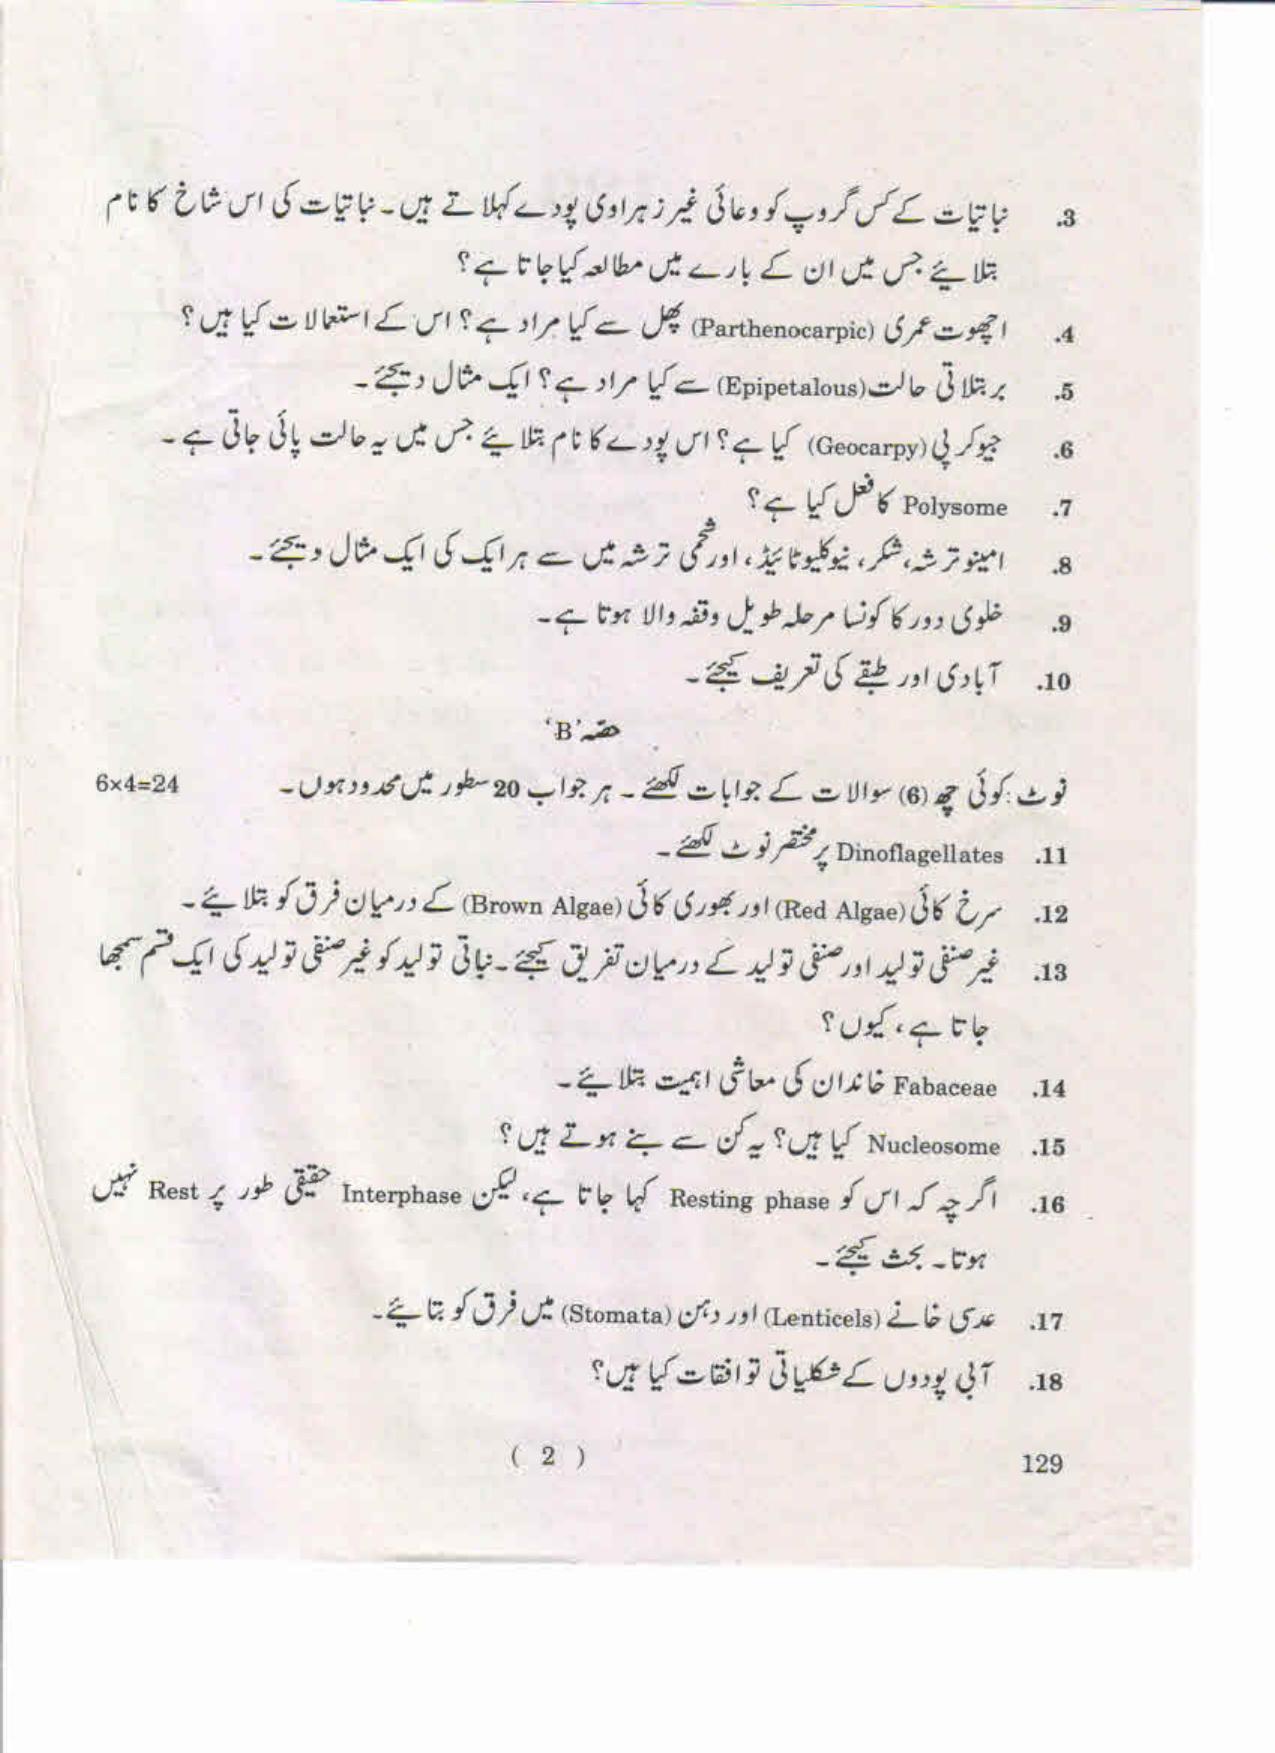 3. نباتیات کے کس گروپ کو وعائی غیر زہراوی پودے کہلاتے ہیں۔ نباتیات کی اس شاخ کا نام
بتلائیے جس میں ان کے بارے میں مطالعہ کیا جاتا ہے؟
4. اچھوت عمری (Parthenocarpic) پھل سے کیا مراد ہے؟ اس کے استعمالات کیا ہیں؟
5. بر بتلاتی حالت (Epipetalous) سے کیا مراد ہے؟ ایک مثال دیجئے۔
6. جیوکرپی (Geocarpy) کیا ہے؟ اس پودے کا نام بتلائیے جس میں یہ حالت پائی جاتی ہے۔
7. Polysome کا فعل کیا ہے؟
8. امینو ترشہ، شکر، نیوکلیوٹائیڈ، اور شحمی ترشہ میں سے ہر ایک کی ایک مثال دیجئے۔
9. خلوی دور کا کونسا مرحلہ طویل وقفہ والا ہوتا ہے۔
10. آبادی اور طبقے کی تعریف کیجئے۔
حصّہ 'B'
نوٹ: کوئی چھ (6) سوالات کے جوابات لکھئے۔ ہر جواب 20 سطور میں محدود ہوں۔ 6×4=24
11. Dinoflagellates پر مختصر نوٹ لکھئے۔
12. سرخ کائی (Red Algae) اور بھوری کائی (Brown Algae) کے درمیان فرق کو بتلائیے۔
13. غیر صنفی تولید اور صنفی تولید کے درمیان تفریق کیجئے۔ نباتی تولید کو غیر صنفی تولید کی ایک قسم سمجھا
جاتا ہے، کیوں؟
14. Fabaceae خاندان کی معاشی اہمیت بتلائیے۔
15. Nucleosome کیا ہیں؟ یہ کن سے بنے ہوتے ہیں؟
16. اگرچہ کہ اس کو Resting phase کہا جاتا ہے، لیکن Interphase حقیقی طور پر Rest نہیں
ہوتا۔ بحث کیجئے۔
17. عدسی خانے (Lenticels) اور دہن (Stomata) میں فرق کو بتایئے۔
18. آبی پودوں کے شکلیاتی توافقات کیا ہیں؟
129 ( 2 )